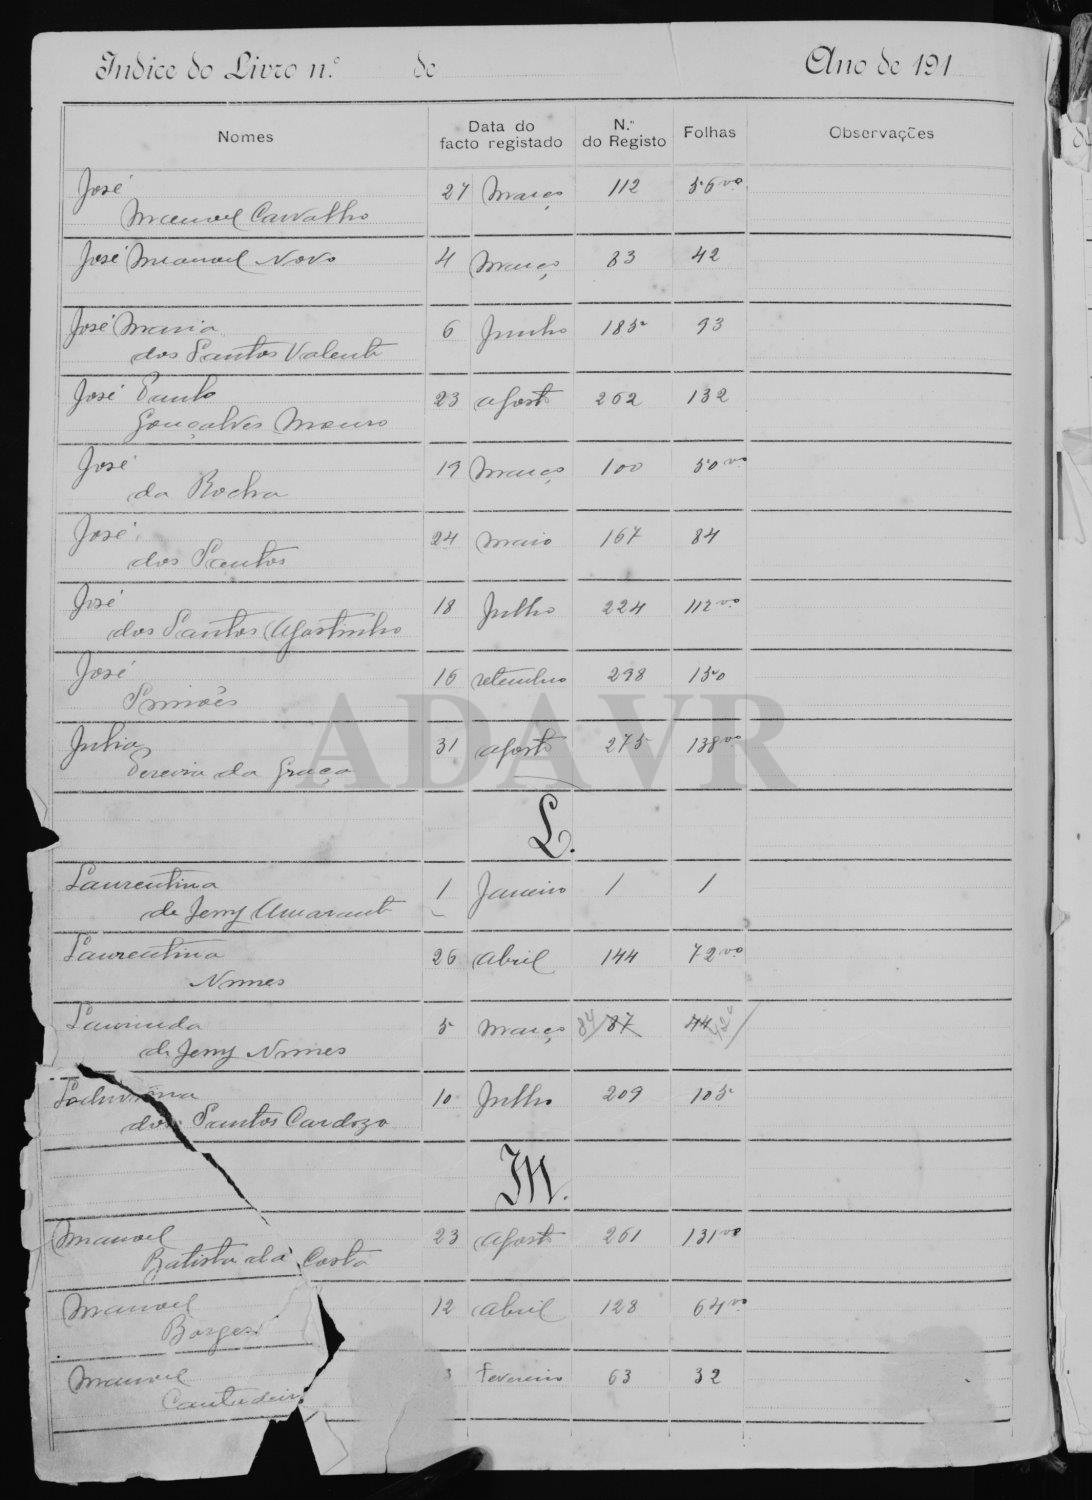 Indice do Livro n.º de Ano de 191
Nomes Data do facto registado N.º do Registo Folhas Observações
José 27 Março 112 56 vº
Manuel Carvalho
José Manoel Novo 4 Março 83 42
José Maria 6 Junho 185 93
dos Santos Valente
José Paulo 23 Agosto 262 132
Gonçalves Mauro
José 19 Março 100 50 vº
da Rocha
José 24 Maio 167 84
dos Santos
José 18 Julho 224 112 vº
dos Santos Agostinho
José 16 setembro 298 150
Simões
Julia 31 Agosto 275 138 vº
Pereira da Graça
ADAVR
L.
Laurentina 1 Janeiro 1 1
de Jesus Amarante
Laurentina 26 Abril 144 72 vº
Nunes
Laurinda 5 Março 84 87 44 42 vº
de Jesus Nunes
10 Julho 209 105
dos Santos Cardozo
M.
Manoel 23 Agosto 261 131 vº
Batista da Costa
Manoel 12 Abril 128 64 vº
Borges
Manoel 3 Fevereiro 63 32